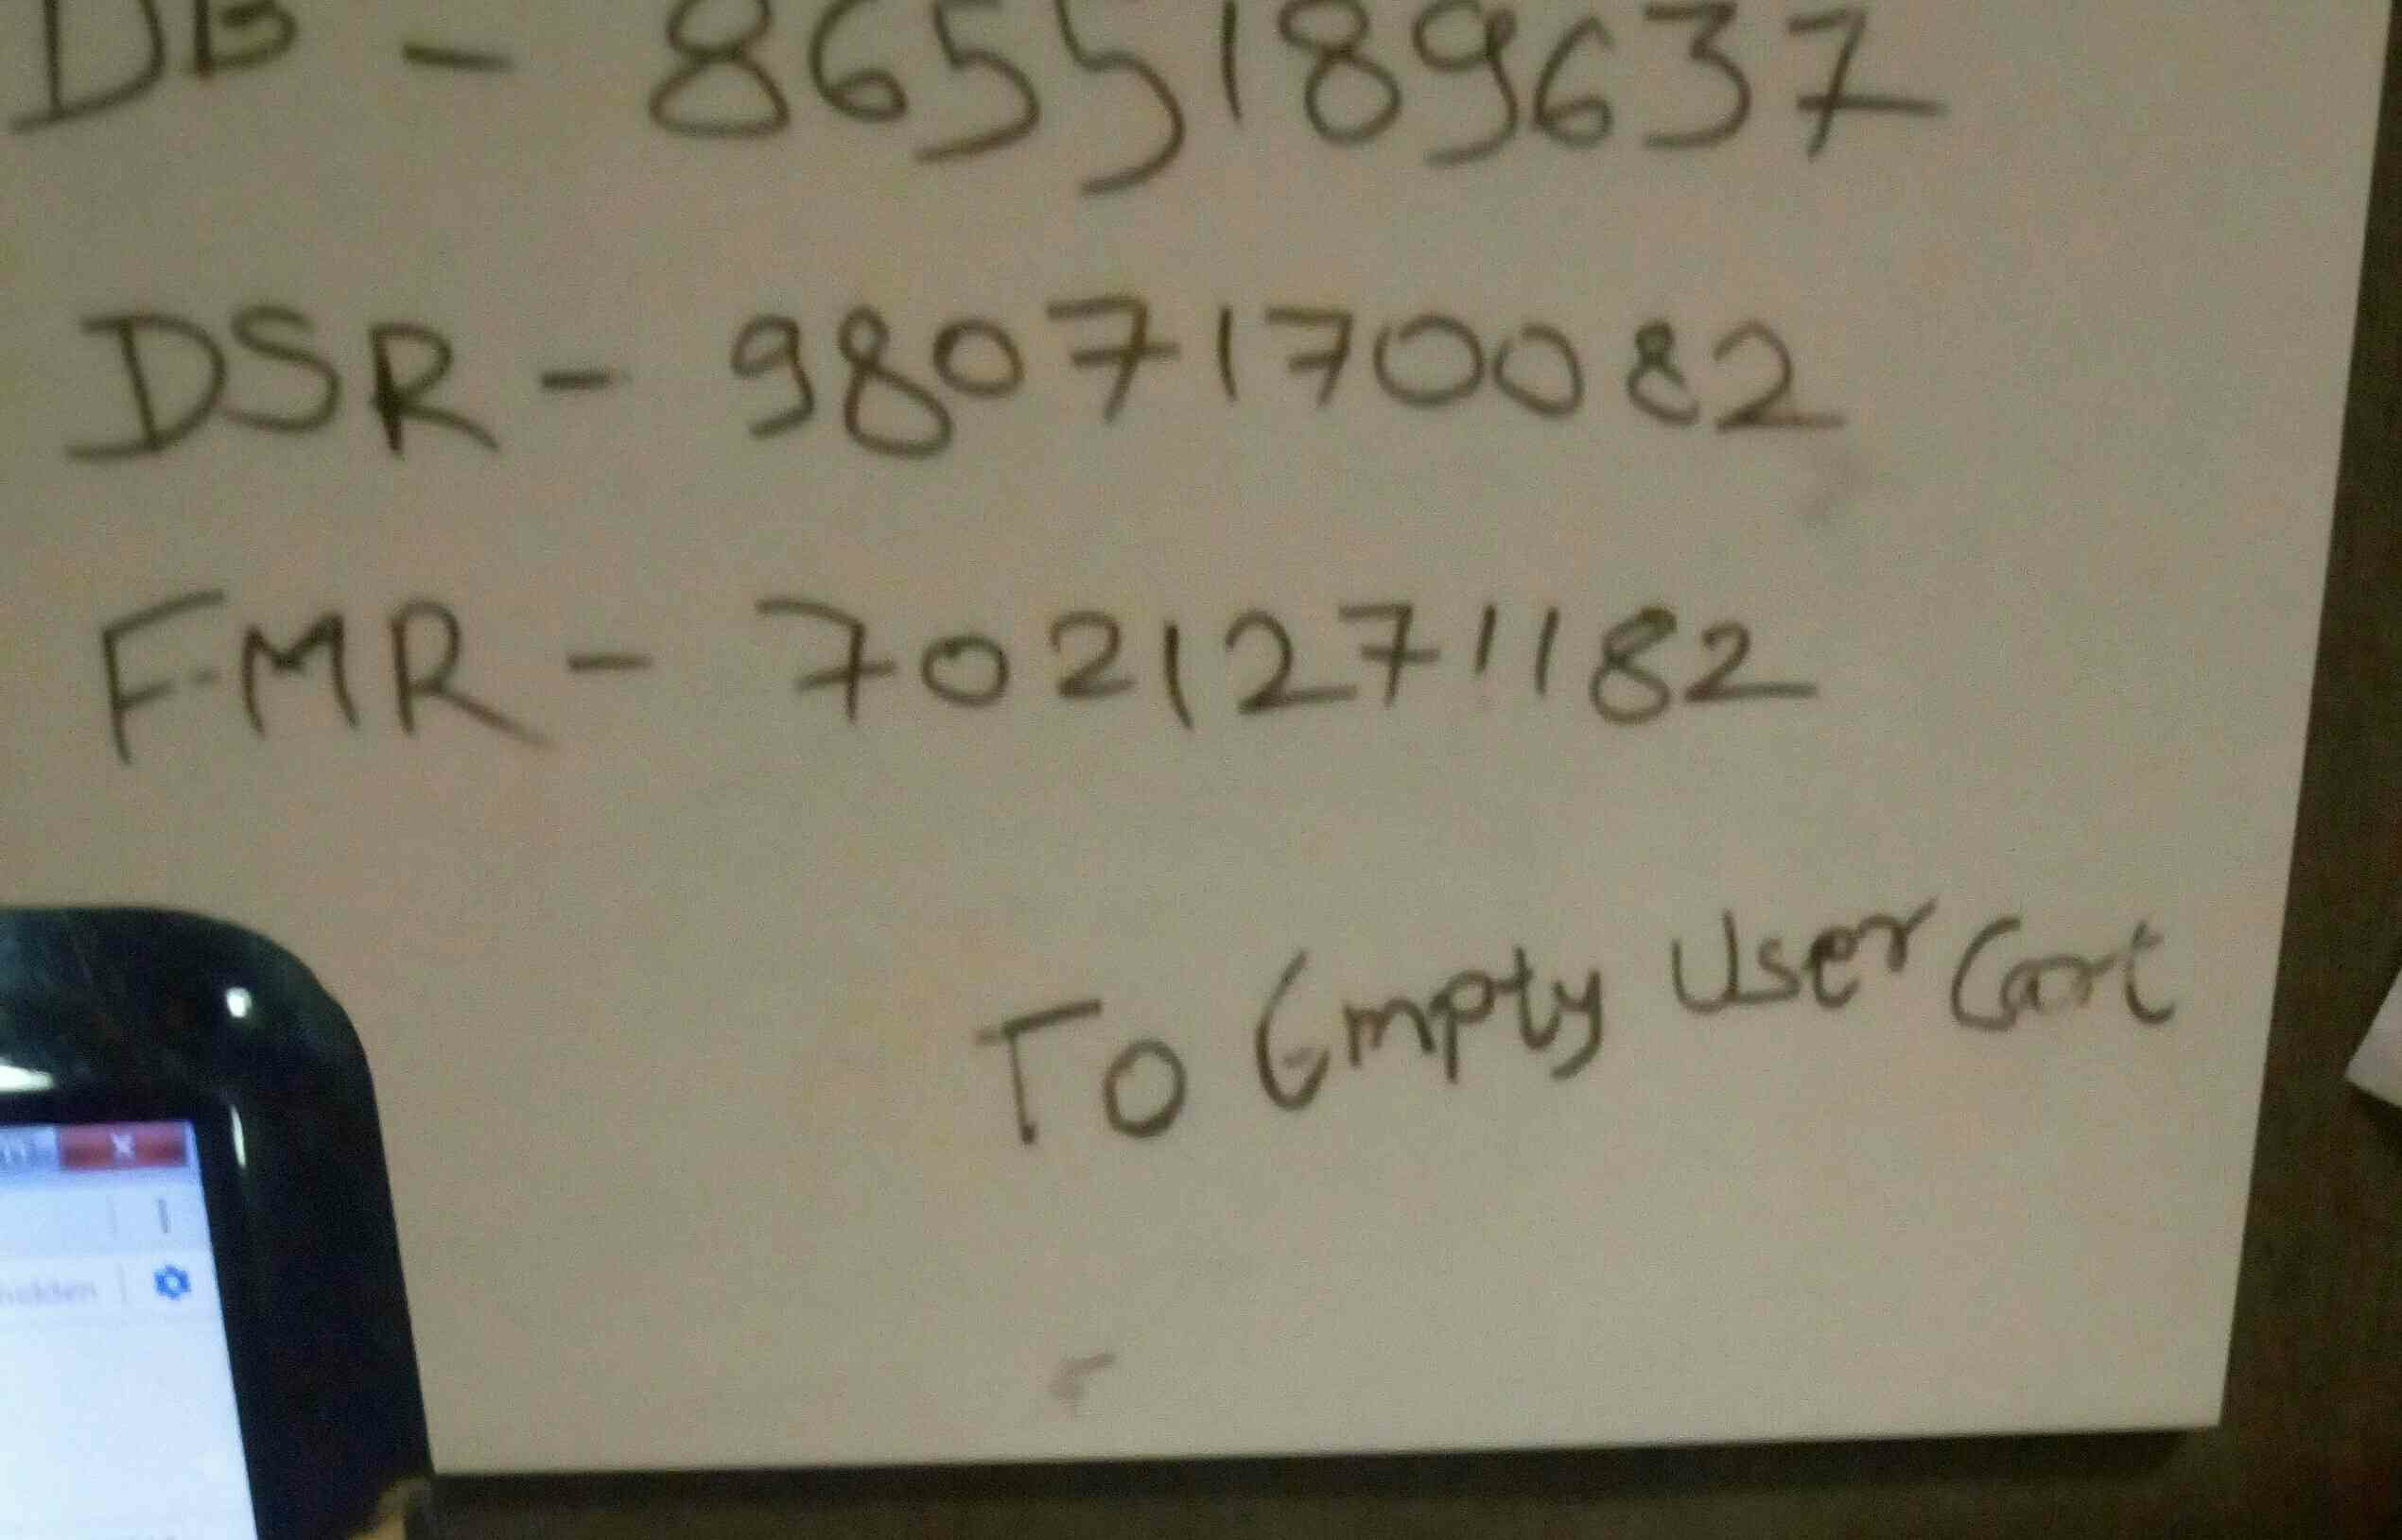 DB - 8655189637
DSR - 9807170082
FMR - 7021271182
To Empty User Cart
X
hidden